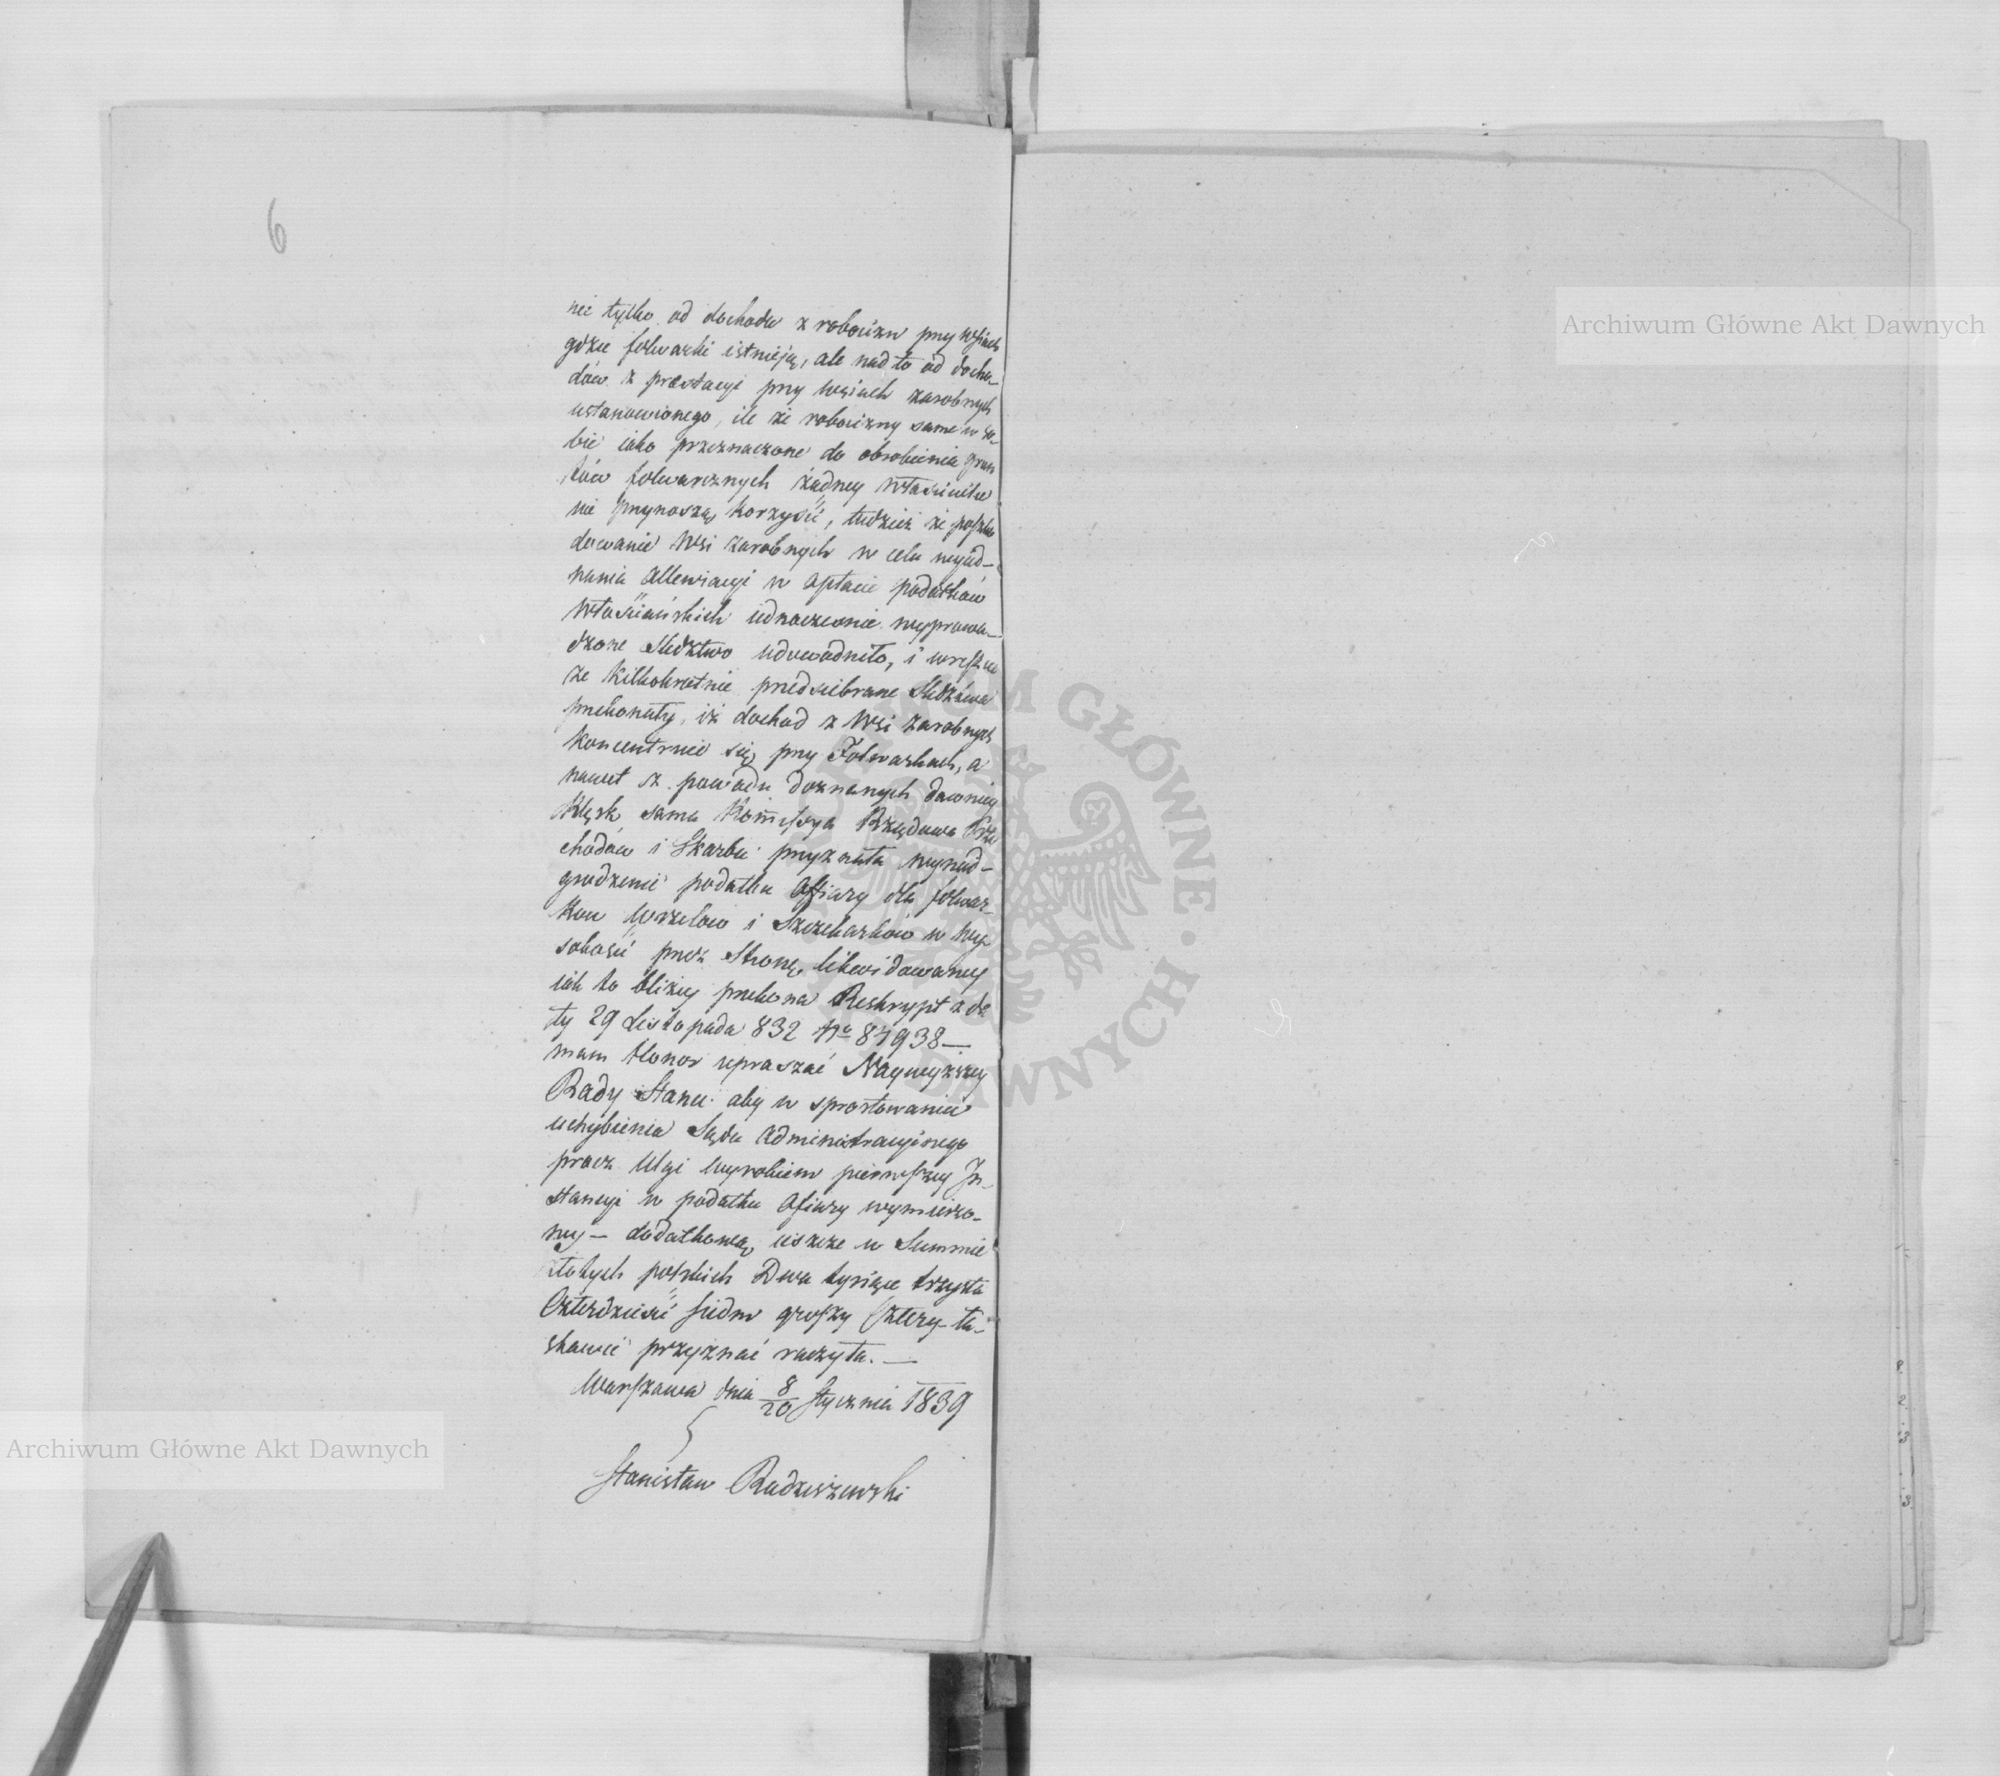 6
nie tylko od dochodu z robocizn przy Wsiach
gdzie folwarki istnieją, ale nad to od docho-
dów z prestacyi przy wsiach zarobnych
ustanowionego, ile że robocizny same w so-
bie iako przeznaczone do obrobienia grun
tów folwarcznych żadney Właścicielowi
nie przynoszą korzyści, tudzież że poszko
dowanie Wsi zarobnych w celu wyied-
nania allewiacyi w opłacie podatków
Włościańskich iednocześnie wyprowa-
dzone śledztwo udowodniło, i wreszcie
że kilkokrotnie przedsiebrane śledztwa
przekonały, iż dochod z Wsi zarobnych
koncentruie się przy Folwarkach, a
nawet z powodu doznanych dawniey
klęsk sama Kommissya Rządowa Przy
chodów i Skarbu przyznała wynad-
grodzenie podatku Offiary dla folwar-
kow Wrzelow i Szczekarków w wy-
sokości przez Stronę likwidowaney
iak to bliżey przekona Reskrypt z da
ty 29 Listopada 832 No 84938 —
mam Honor upraszać Naywyższey
Rady Stanu aby w sprostowaniu
uchybienia Sądu Administracyinego
procz Ulgi Wyrokiem pierwszey In-
stancyi w podatku Ofiary wymierzo-
ney — dodatkową ieszcze w Summie
złotych polskich Dwa tysiące trzysta
Czterdzieści siedm groszy cztery ła-
skawie przyznać raczyła. —
Warszawa dnia 8/20 Stycznia 1839
Stanisław Radziszewski
Archiwum Główne Akt Dawnych
Archiwum Główne Akt Dawnych